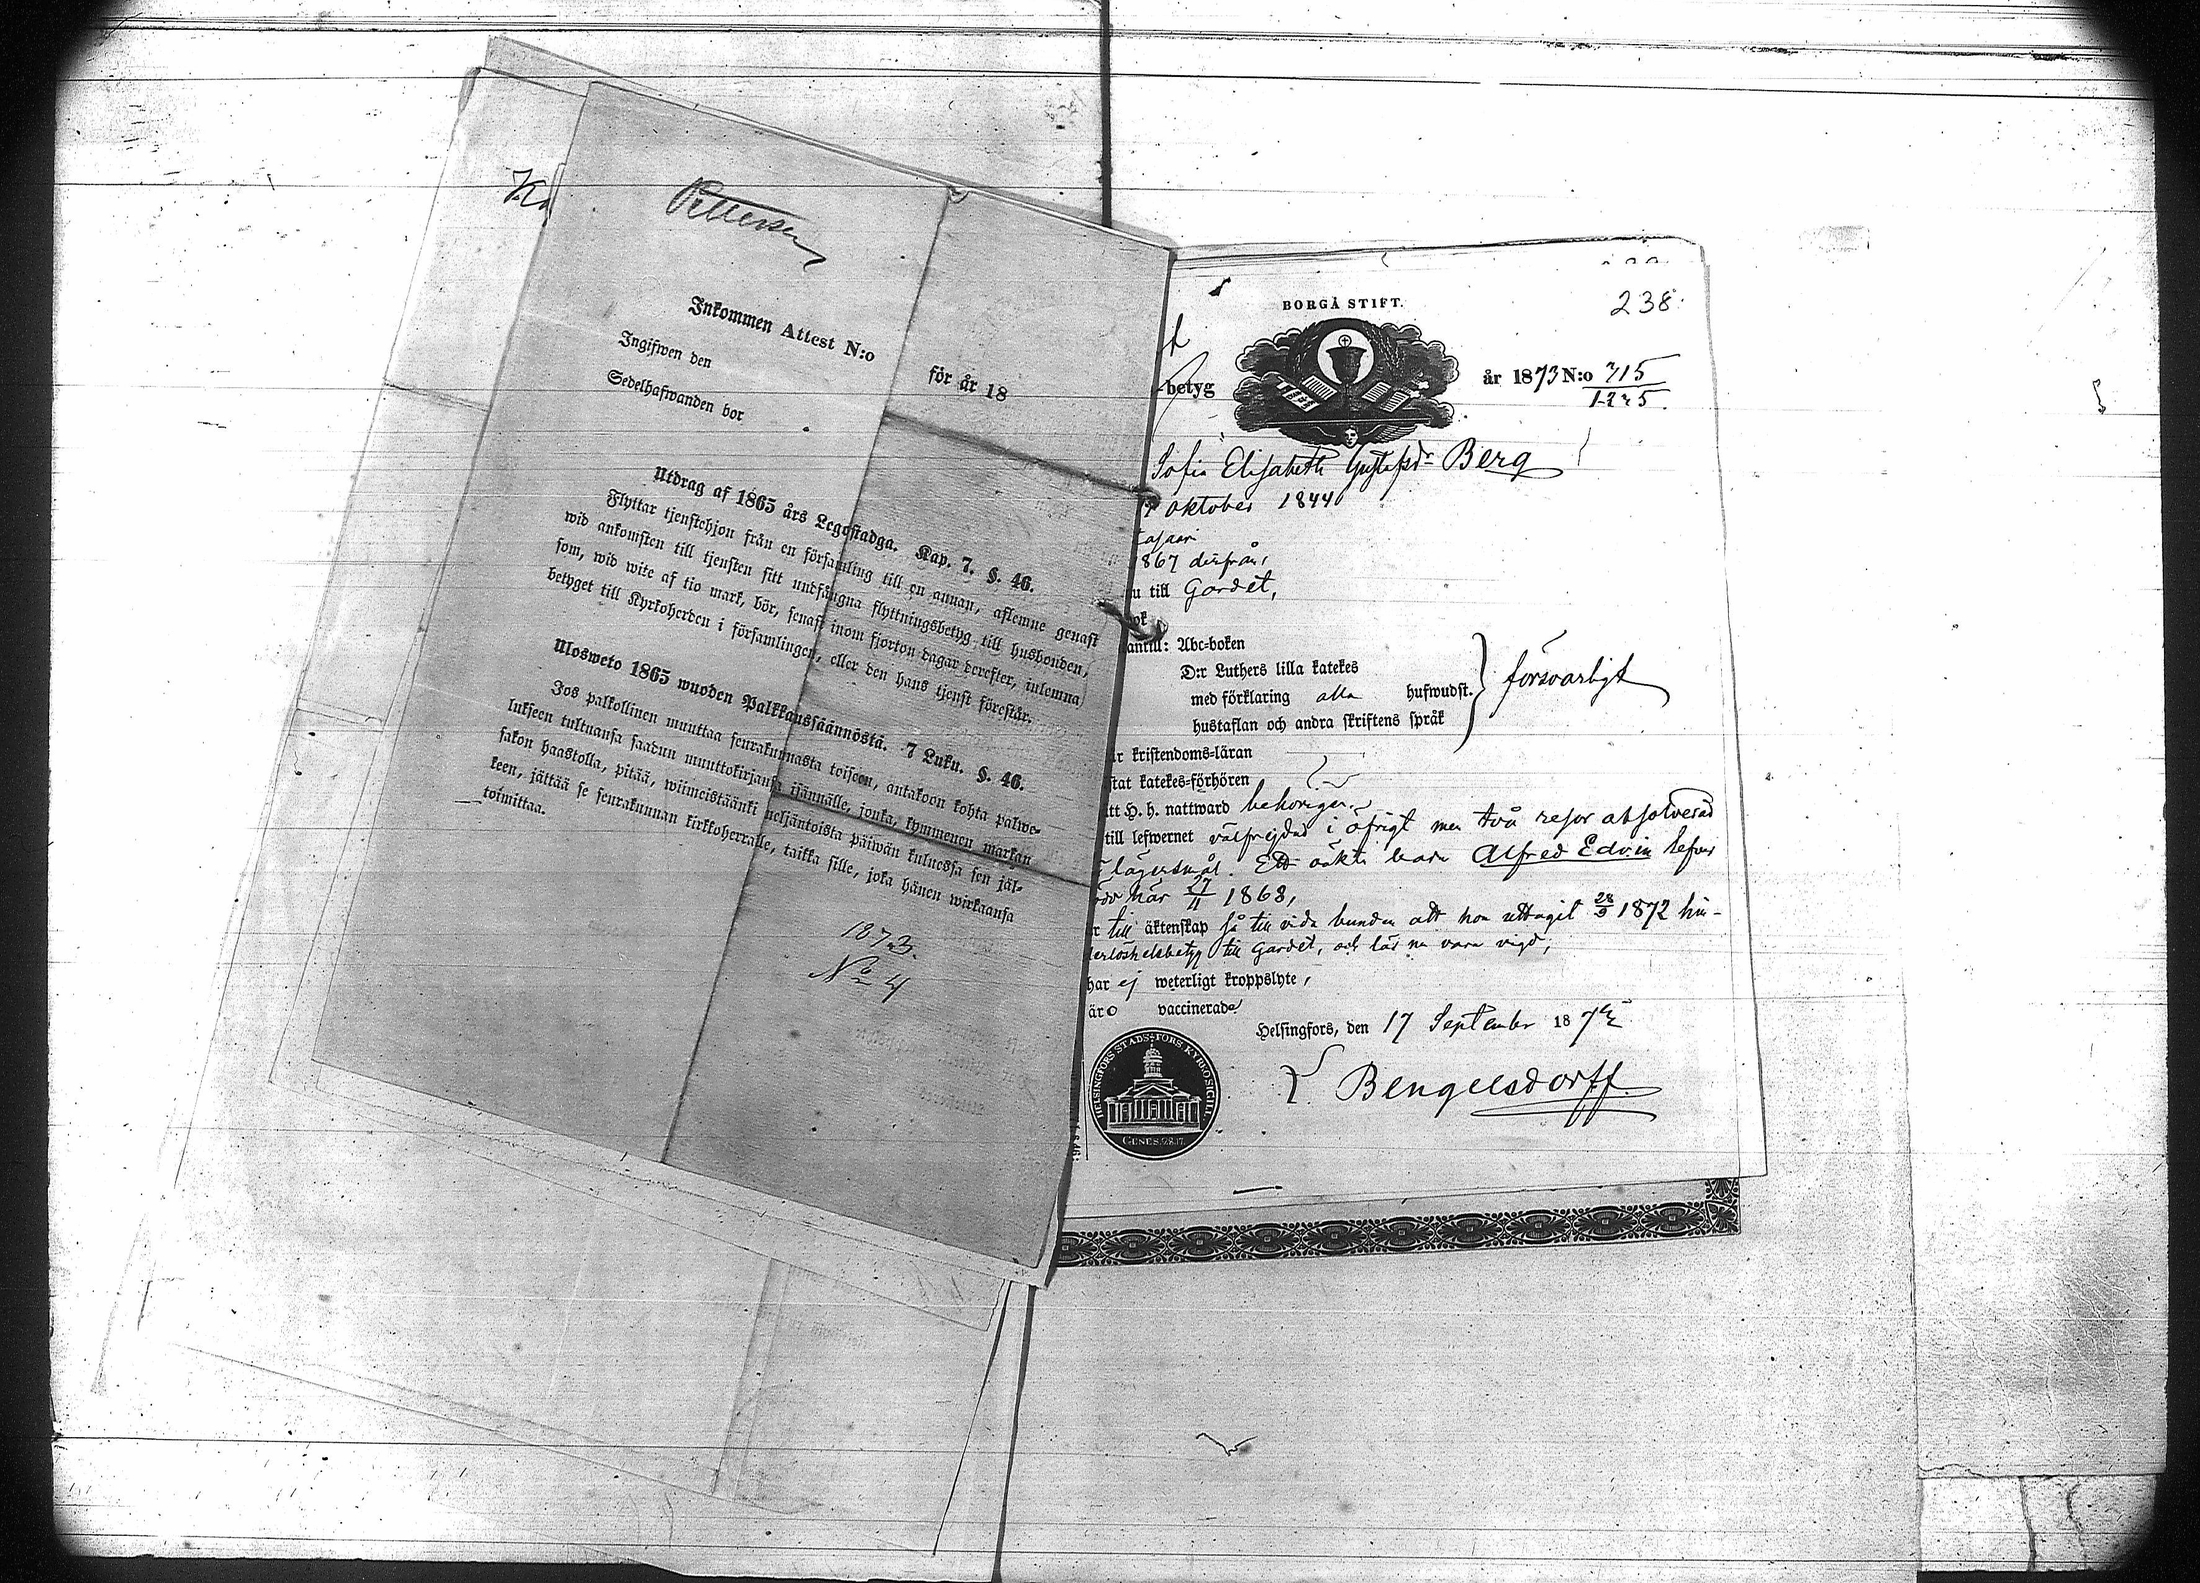 Inkommen Attest N:o
för år 18
Ingifwen den
Sedelhafwanden bor
Utdrag af 1865 års Legostadga. Kap. 7. §. 46.
Flyttar tjenstehjon från en församling till en annan, aflemne genast
wid ankomsten till tjensten sitt undfångna flyttningsbetyg till husbonden,
som, wid wite af tio mark, bör, senast inom fjorton dagar derefter, inlemna
betyget till Kyrkoherden i församlingen, eller den hans tjenst förestår.
Ulosweto 1865 wuoden Palkkaussäännöstä. 7 Luku. §. 46.
Jos palkollinen muuttaa seurakunnasta toiseen, antakoon kohta palwe-
lukseen tultuansa saadun muuttokirjansa isännälle, jonka, kymmenen markan
sakon haastolla, pitää, wiimeistäänki neljäntoista päiwän kuluessa sen jäl-
keen, jättää se seurakunnan kirkkoherralle, taikka sille, joka hänen wirkaansa
toimittaa.
1873.
BORGÅ STIFT.
238
betyg
år 1873 N:o 715
1225
Sofia Elisabeth Gustafsdr Berg
oktober 1844
867 derifrån,
u till Gardet,
antill: Abc-boken
D:r Luthers lilla katekes
med förklaring alla hufwudst. } försvarligt
hustaflan och andra skriftens språk
r kristendoms-läran
stat katekes-förhören
tt H. h. nattward behörigen
till lefwernet välfrejdad i öfrigt men två resor absolverad
lägersmål. Ett oäkta barn Alfred Edvin
här 27/11 1868,
r till äktenskap så till vida bunden att hon uttagit 28/9 1872 hin-
derlöshetsbetyg till Gardet, och lär nu vara vigd,
har ej weterligt kroppslyte,
är vaccinerad
Helsingfors, den 17 September 187
Bengelsdorff.
HELSINGFORS STADS-FÖRS. KYRKOSIGILL.
GENES. 28.17.